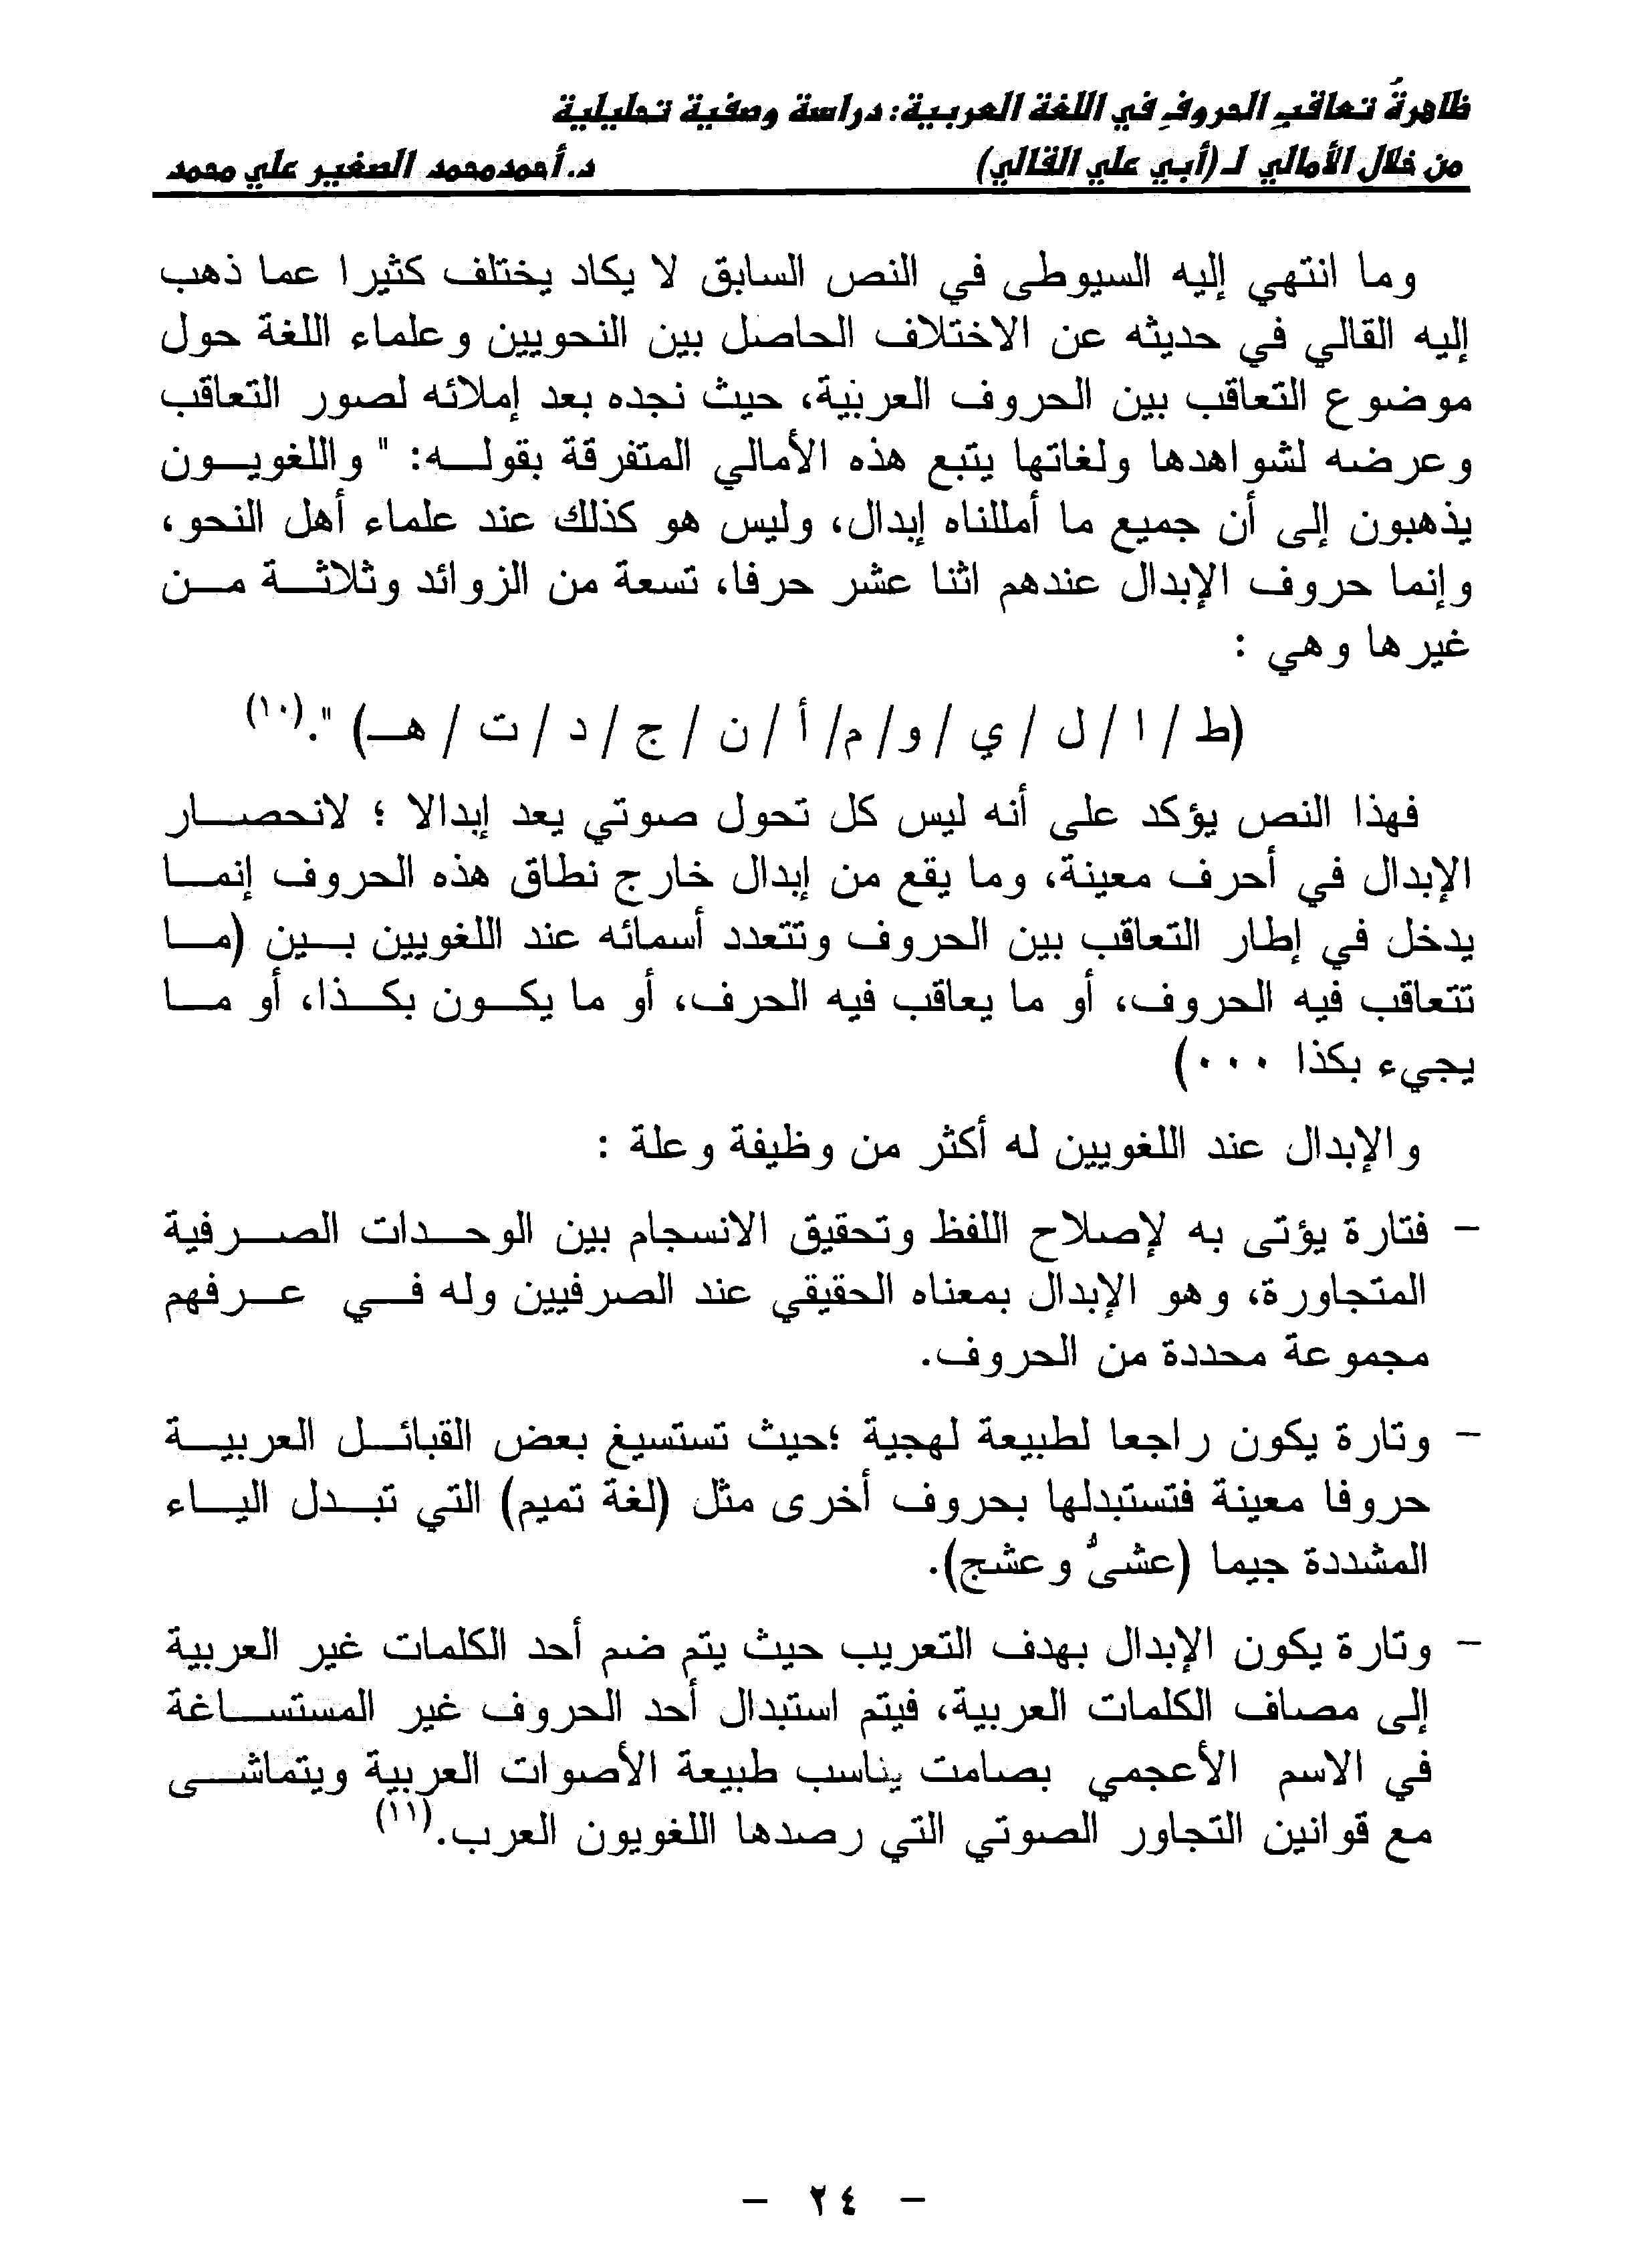 ظاهرةُ تعاقبِ الحروفِ في اللغة العربية: دراسة وصفية تحليلية
من خلال الأمالي لـ (أبي علي القالي) د. أحمد محمد الصغير علي محمد
وما انتهي إليه السيوطى في النص السابق لا يكاد يختلف كثيرا عما ذهب
إليه القالي في حديثه عن الاختلاف الحاصل بين النحويين وعلماء اللغة حول
موضوع التعاقب بين الحروف العربية، حيث نجده بعد إملائه لصور التعاقب
وعرضه لشواهدها ولغاتها يتبع هذه الأمالي المتفرقة بقوله: " واللغويون
يذهبون إلى أن جميع ما أمللناه إبدال، وليس هو كذلك عند علماء أهل النحو،
وإنما حروف الإبدال عندهم اثنا عشر حرفا، تسعة من الزوائد وثلاثة من
غيرها وهي :
(ط / ا / ل / ي / و / م/ أ / ن / ج / د / ت / هـ) ".(١٠)
فهذا النص يؤكد على أنه ليس كل تحول صوتي يعد إبدالا ؛ لانحصار
الإبدال في أحرف معينة، وما يقع من إبدال خارج نطاق هذه الحروف إنما
يدخل في إطار التعاقب بين الحروف وتتعدد أسمائه عند اللغويين بين (ما
تتعاقب فيه الحروف، أو ما يعاقب فيه الحرف، أو ما يكون بكذا، أو ما
يجيء بكذا ٠٠٠)
والإبدال عند اللغويين له أكثر من وظيفة وعلة :
- فتارة يؤتى به لإصلاح اللفظ وتحقيق الانسجام بين الوحدات الصرفية
المتجاورة، وهو الإبدال بمعناه الحقيقي عند الصرفيين وله في عرفهم
مجموعة محددة من الحروف.
- وتارة يكون راجعا لطبيعة لهجية ؛حيث تستسيغ بعض القبائل العربية
حروفا معينة فتستبدلها بحروف أخرى مثل (لغة تميم) التي تبدل الياء
المشددة جيما (عشىُّ وعشج).
- وتارة يكون الإبدال بهدف التعريب حيث يتم ضم أحد الكلمات غير العربية
إلى مصاف الكلمات العربية، فيتم استبدال أحد الحروف غير المستساغة
في الاسم الأعجمي بصامت يناسب طبيعة الأصوات العربية ويتماشى
مع قوانين التجاور الصوتي التي رصدها اللغويون العرب.(١١)
- ٢٤ -